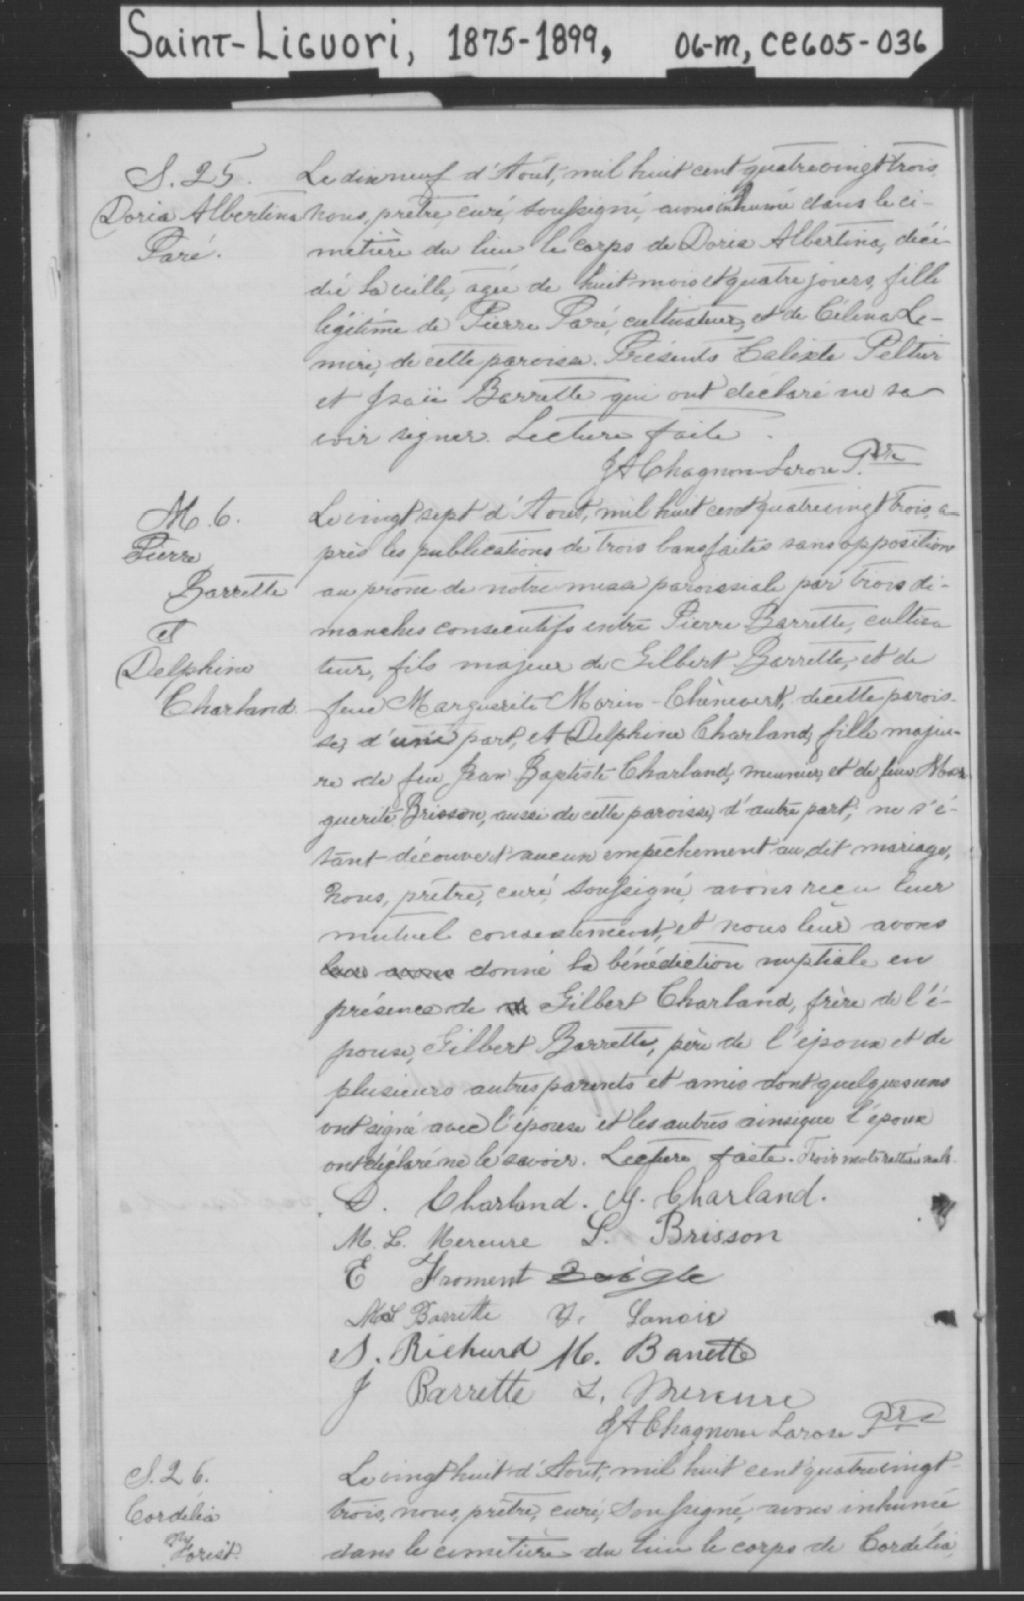 Saint-Liguori, 1875-1899, 06-m, CE605-036
S. 25.
Doria Albertina
Paré.
Le dixneuf d'Aout, mil huit cent quatrevingt trois,
nous, prêtre, curé, soussigné, avons inhumé dans le ci-
metière du lieu le corps de Doria Albertina, décé-
dée la veille, agée de huit mois et quatre jours, fille
légitime de Pierre Paré, cultivateur, et de Célina Le-
mire, de cette paroisse. Présents Calixte Peltier
et Isaïe Barrette qui ont déclaré ne sa
voir signer. Lecture faite.
JA Chagnon Larose Ptre
M. 6.
Pierre
Barrette
et
Delphine
Charland.
Le vingt sept d'Aout, mil huit cent quatrevingt trois, a-
près les publications de trois bans faites sans opposition
au prône de notre messe paroissiale par trois di-
manches consecutifs entre Pierre Barrette, cultiva
teur, fils majeur de Gilbert Barrette, et de
feue Marguerite Morin-Chênevert, de cette parois-
se, d'une part, et Delphine Charland, fille majeu-
re de feu Jean Baptiste Charland, meunier, et de feue Mar
guerite Brisson, aussi de cette paroisse, d'autre part, ne s'é-
tant découvert aucun empêchement au dit mariage,
nous, prêtre, curé, soussigné, avons reçu leur
mutuel consentement, et nous leur avons
leur avons donné la bénédiction nuptiale en
présence de Gilbert Charland, frère de l'é-
pouse, Gilbert Barrette, père de l'époux et de
plusieurs autres parents et amis dont quelques uns
ont signé avec l'épouse et les autres ainsi que l'époux
ont déclaré ne le savoir. Lecture faite. Trois mots raturés nuls.
D. Charland. M. Charland.
M. L. Mercure L. Brisson
E Froment Daigle
Barrette Lanoie
S. Richard M. Barrette
J Barrette L. Mercure
JA Chagnon Larose Ptre
S. 26.
Cordélia
Forest.
Le vingt huit d'Aout, mil huit cent quatrevingt-
trois, nous, prêtre, curé, soussigné, avons inhumé
dans le cimetière du lieu le corps de Cordélia